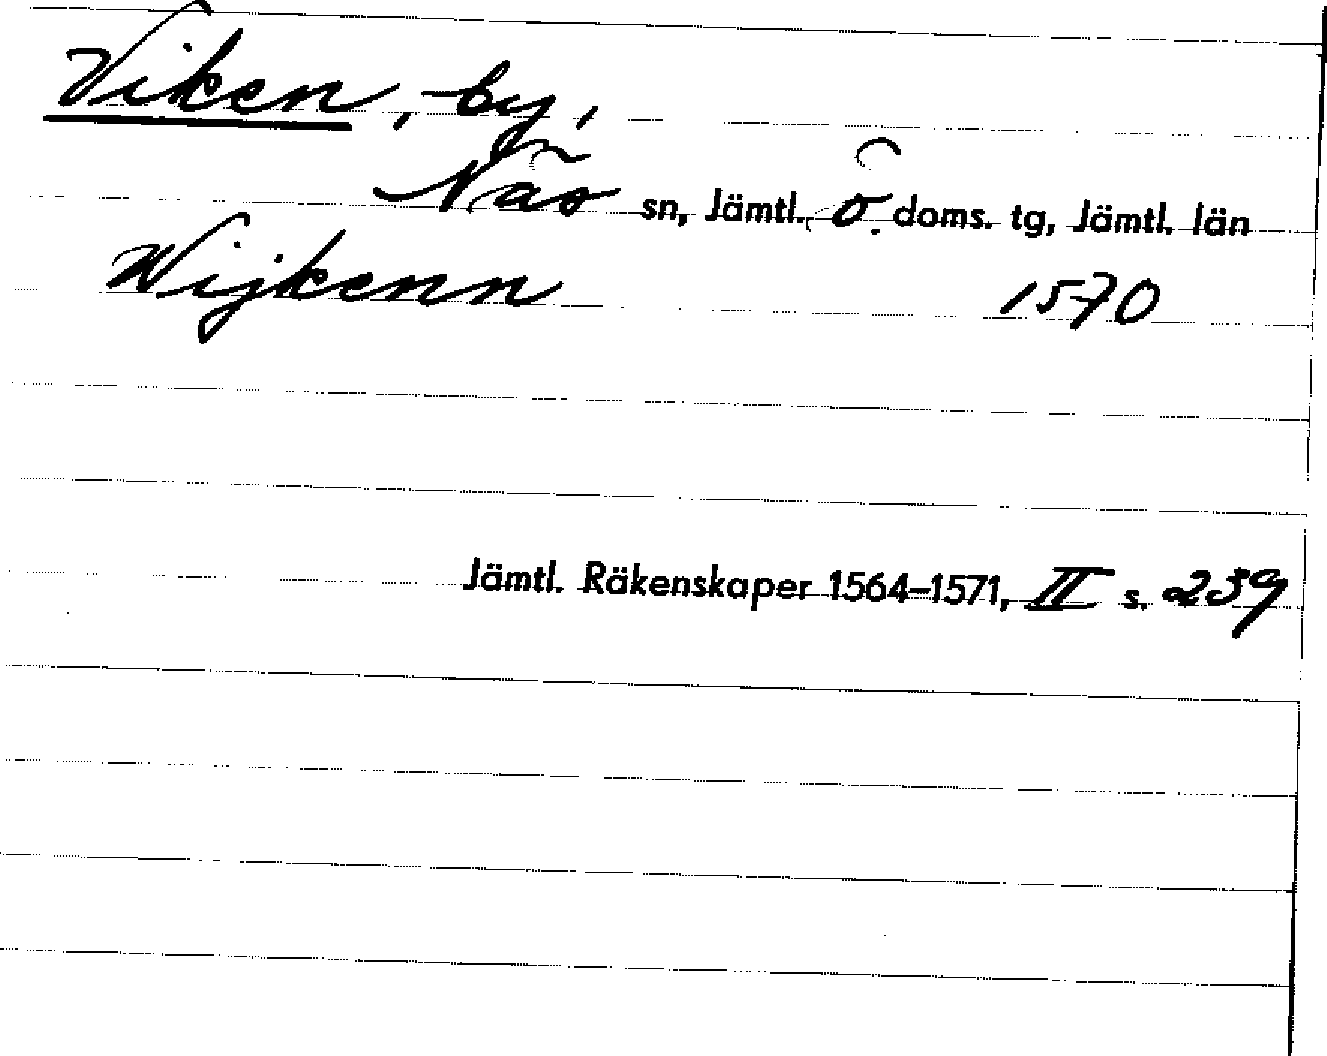 Viken, by,
Näs sn, Jämtl. ö. doms. tg, Jämtl. län
Wijkenn 1570
Jämtl. Räkenskaper 1564–1571, II s. 239